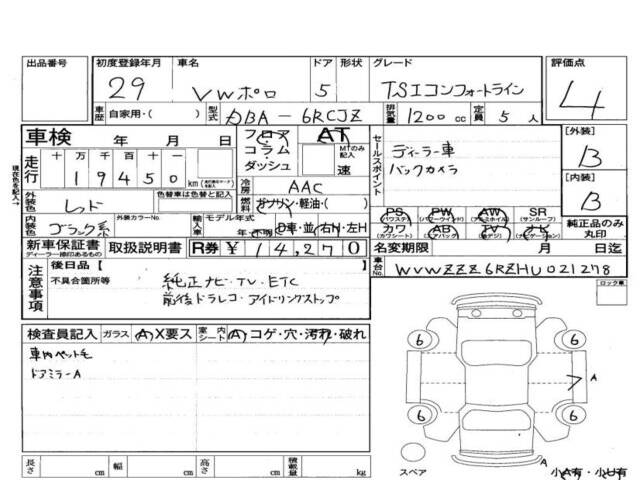 出品番号 初度登録年月 車名 ドア 形状 グレード 評価点
29 VWポロ 5 TSIコンフォートライン 4
車歴 自家用・( ) 型式 DBA-6RCJZ 排気量 1200 cc 定員 5 人
車検 年 月 日 フロア・コラム・ダッシュ AT MTのみ記入 速
走行 十 万 千 百 十 km
1 9 4 5 0
セールスポイント
ディーラー車
バックカメラ
[外装] B
[内装] B
純正品のみ丸印
外装色 レッド 色替車は色替と記入 冷房 AAC
内装色 ブラック系 外装カラーNo. 輸入車 モデル年式 年 不明
燃料 ガソリン・軽油・( )
D車・並(右H・左H
PS (パワステ) PW (パワーウインド) AW (アルミホイル) SR (サンルーフ)
カワ (カワシート) AB (エアバッグ) TV ナビ (ナビゲーション)
新車保証書 ディーラー捺印あるもの 取扱説明書 R券 ¥ 14,270
名変期限 月 日迄
車台No. WVWZZZ6RZHU021278
注意事項 後日品 [ ]
不具合箇所等 純正ナビ・TV・ETC
前後ドラレコ・アイドリングストップ
ロック車
検査員記入 ガラス (A)X要ス 室内シート (A) コゲ・穴・汚れ・破れ
車内ペット毛
ドアミラーA
6 6
A
6 6
A
スペア 小A有・小U有
長さ cm 幅 cm 高さ cm 積載量 kg
現在色を記入